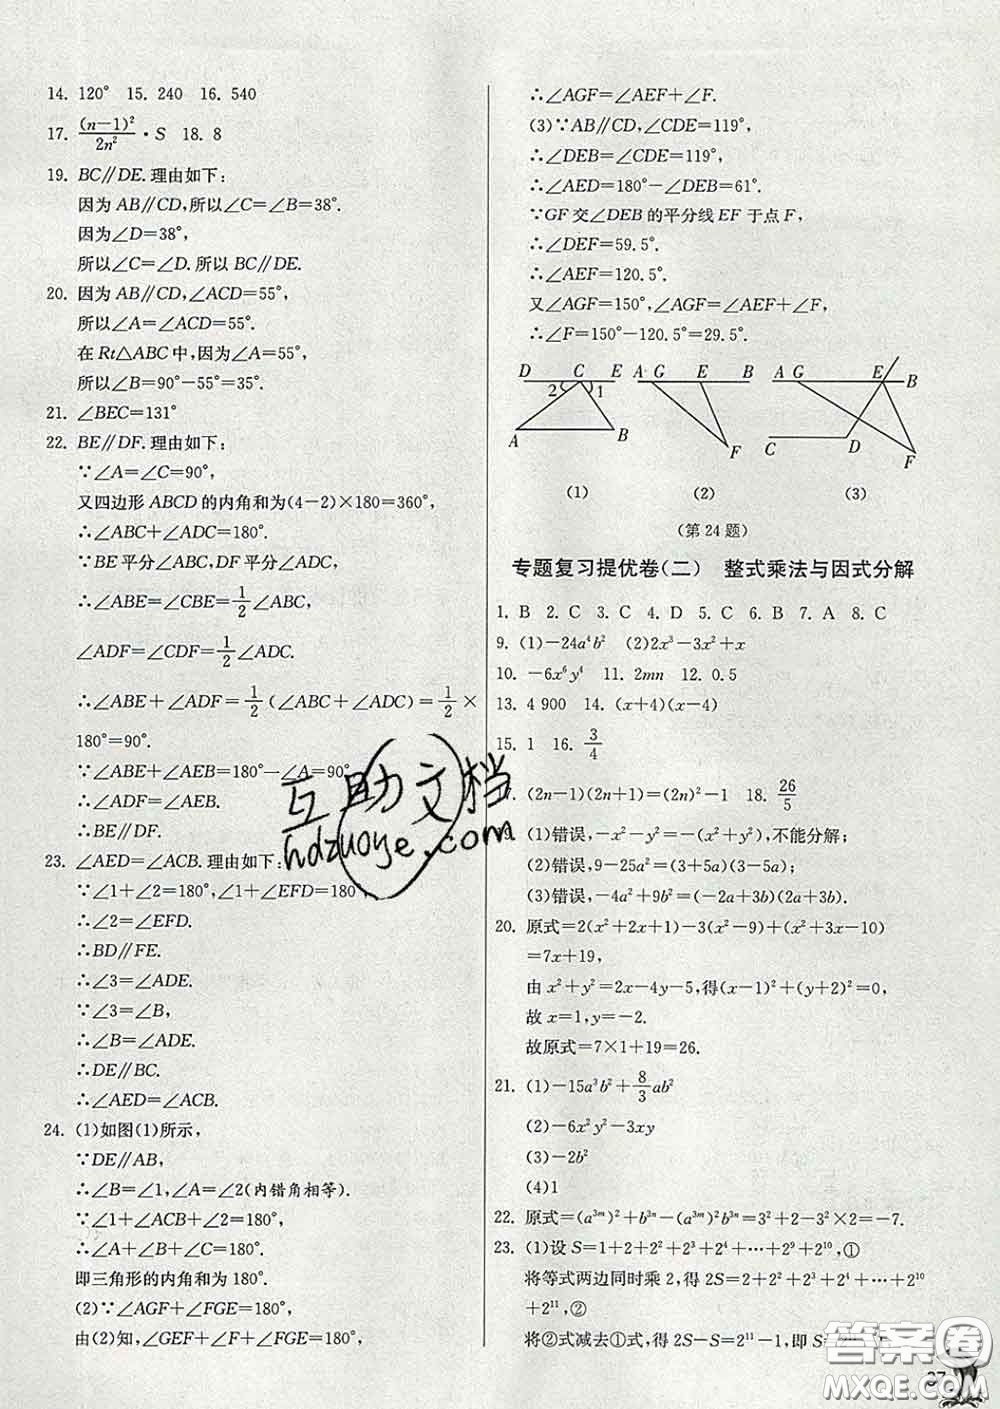 14. 120°  15. 240  16. 540
17. (n−1)²/2n²·S  18. 8
19. BC∥DE.理由如下:
因为AB∥CD,所以∠C=∠B=38°.
因为∠D=38°,
所以∠C=∠D.所以BC∥DE.
20. 因为AB∥CD,∠ACD=55°,
所以∠A=∠ACD=55°.
在Rt△ABC中,因为∠A=55°,
所以∠B=90°−55°=35°.
21. ∠BEC=131°
22. BE∥DF.理由如下:
∵∠A=∠C=90°,
又四边形ABCD的内角和为(4−2)×180=360°,
∴∠ABC+∠ADC=180°.
∵BE平分∠ABC,DF平分∠ADC,
∴∠ABE=∠CBE=1/2∠ABC,
∠ADF=∠CDF=1/2∠ADC.
∴∠ABE+∠ADF=1/2(∠ABC+∠ADC)=1/2×
180°=90°.
∵∠ABE+∠AEB=180°−∠A=90°
∴∠ADF=∠AEB.
∴BE∥DF.
23. ∠AED=∠ACB.理由如下:
∵∠1+∠2=180°,∠1+∠EFD=180
∴∠2=∠EFD.
∴BD∥FE.
∴∠3=∠ADE.
∵∠3=∠B,
∴∠B=∠ADE.
∴DE∥BC.
∴∠AED=∠ACB.
24. (1)如图(1)所示,
∵DE∥AB,
∴∠B=∠1,∠A=∠2(内错角相等).
∵∠1+∠ACB+∠2=180°,
∴∠A+∠B+∠ACB=180°.
即三角形的内角和为180°.
(2)∵∠AGF+∠FGE=180°,
由(2)知,∠GEF+∠F+∠FGE=180°,
∴∠AGF=∠AEF+∠F.
(3)∵AB∥CD,∠CDE=119°,
∴∠DEB=∠CDE=119°,
∴∠AED=180°−∠DEB=61°.
∵GF交∠DEB的平分线EF于点F,
∴∠DEF=59.5°.
∴∠AEF=120.5°.
又∠AGF=150°,∠AGF=∠AEF+∠F,
∴∠F=150°−120.5°=29.5°.
D C E A G E B A G E B
2 1
A B F C D F
(1) (2) (3)
(第24题)
专题复习提优卷(二)  整式乘法与因式分解
1. B  2. C  3. C  4. D  5. C  6. B  7. A  8. C
9. (1)−24a⁴b²  (2)2x³−3x²+x
10. −6x⁶y⁴  11. 2mn  12. 0.5
13. 4 900  14. (x+4)(x−4)
15. 1  16. 3/4
7. (2n−1)(2n+1)=(2n)²−1  18. 26/5
9. (1)错误,−x²−y²=−(x²+y²),不能分解;
(2)错误,9−25a²=(3+5a)(3−5a);
(3)错误,−4a²+9b²=(−2a+3b)(2a+3b).
20. 原式=2(x²+2x+1)−3(x²−9)+(x²+3x−10)
=7x+19,
由x²+y²=2x−4y−5,得(x−1)²+(y+2)²=0,
故x=1,y=−2.
故原式=7×1+19=26.
21. (1)−15a³b²+8/3ab²
(2)−6x²y²−3xy
(3)−2b²
(4)1
22. 原式=(a³ᵐ)²+b³ⁿ−(a³ᵐ)²b³ⁿ=3²+2−3²×2=−7.
23. (1)设S=1+2+2²+2³+2⁴+…+2⁹+2¹⁰,①
将等式两边同时乘2,得2S=2+2²+2³+2⁴+…+2¹⁰
+2¹¹,②
将②式减去①式,得2S−S=2¹¹−1,即S=2¹¹
互助文档
hdzuoye.com
答案圈
MXQE.COM